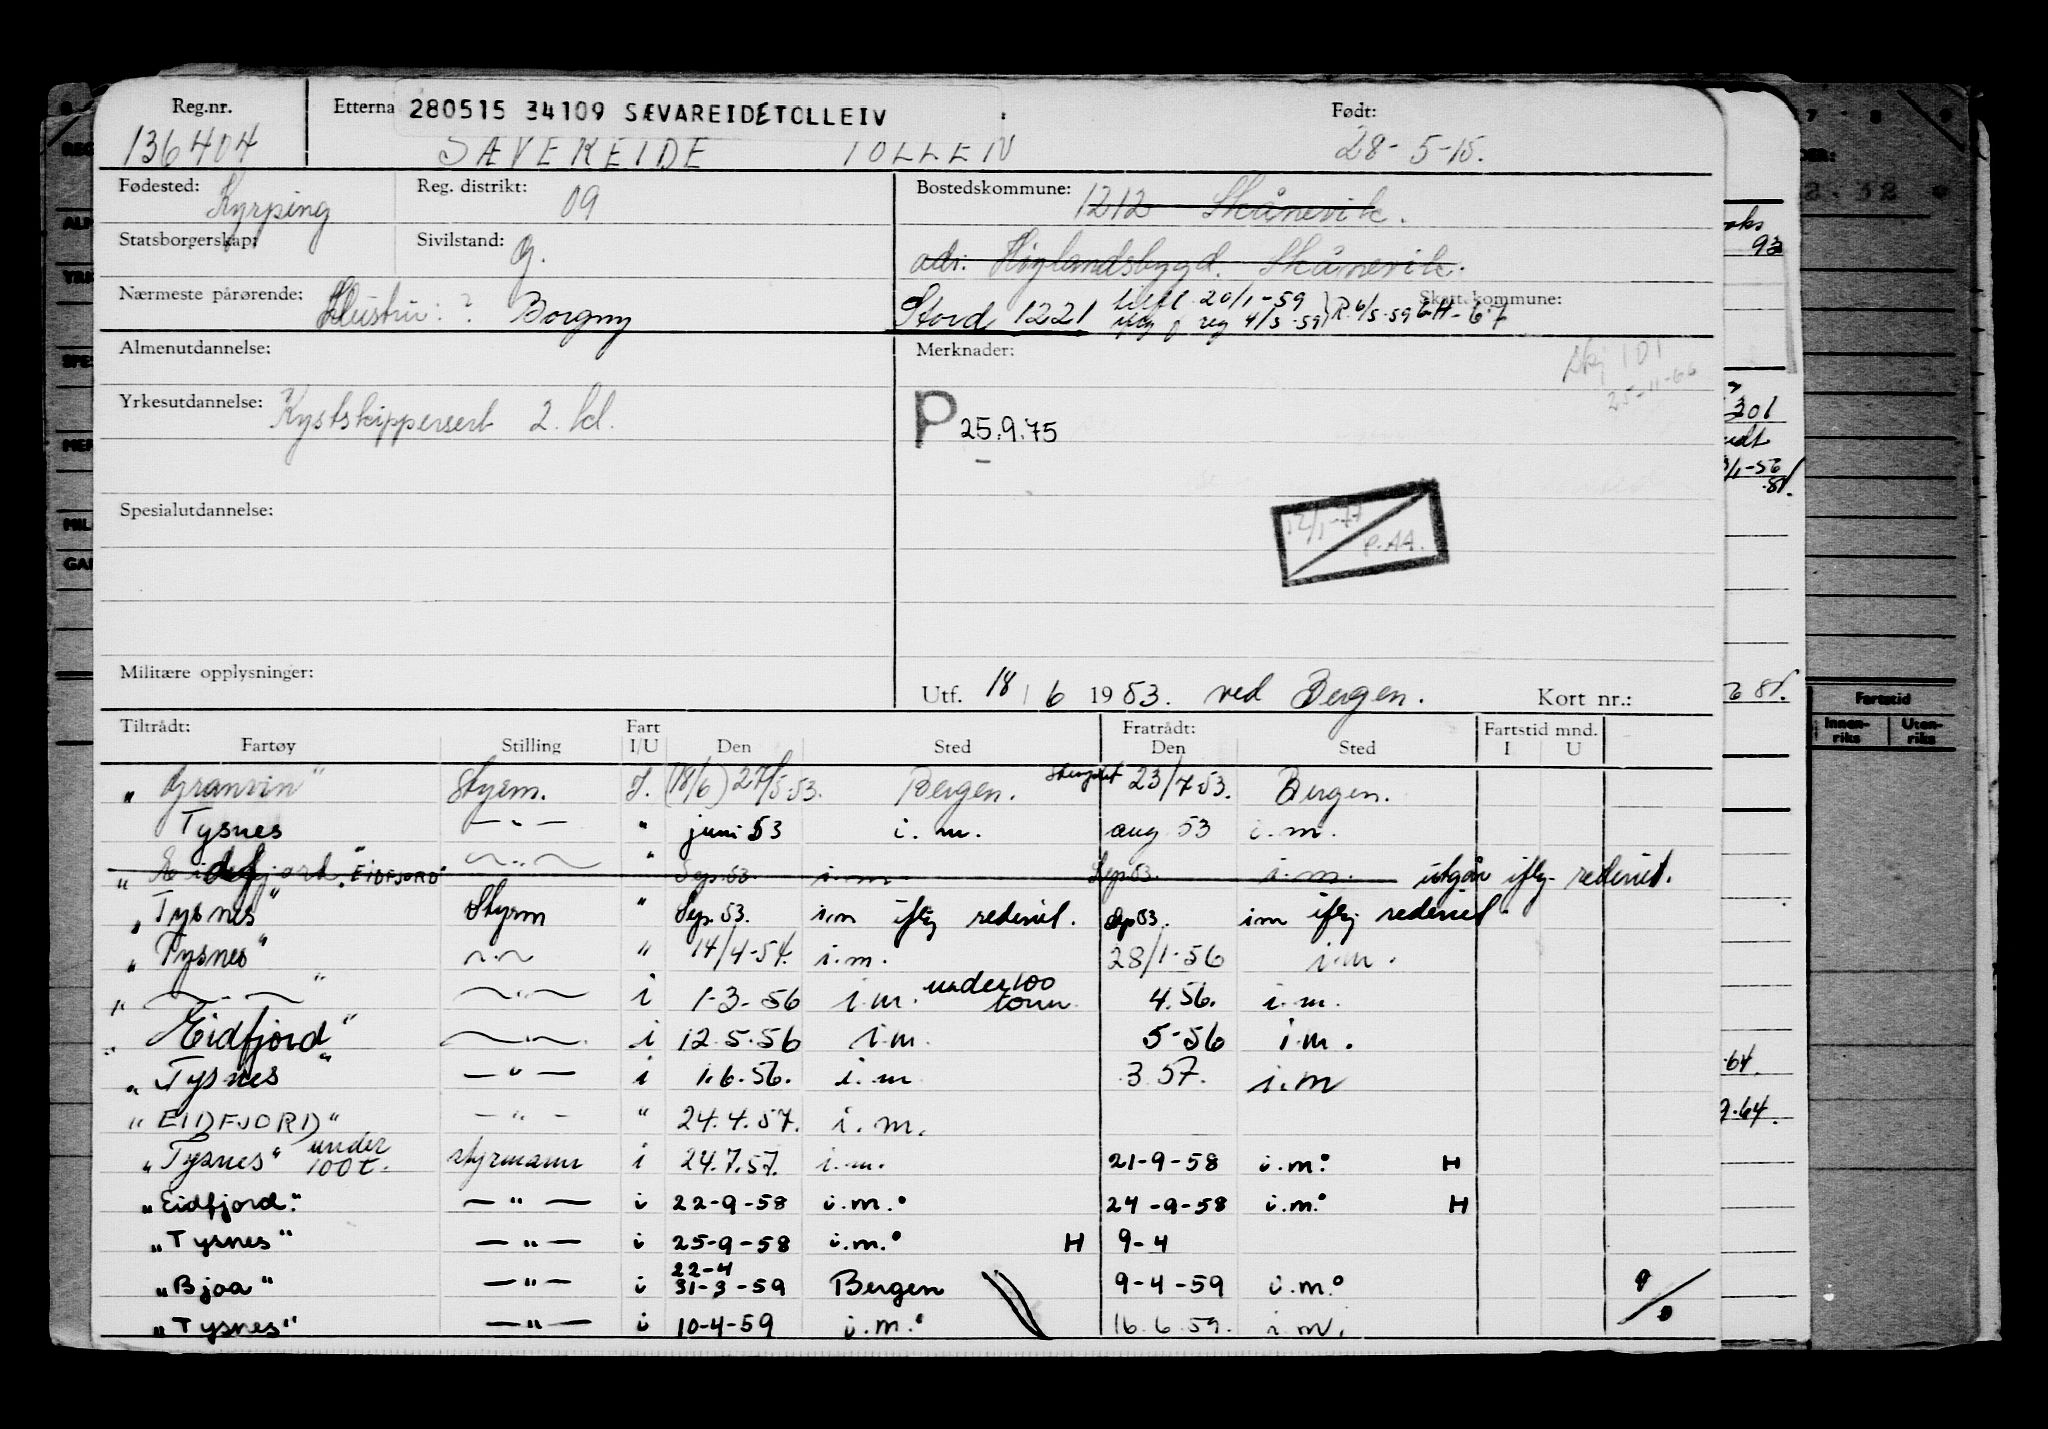 Reg.nr. Etterna 280515 34109 SÆVAREIDE TOLLEIV Født:
136404 SÆVEREIDE TOLLEIV 28-5-15.
Fødested: Kyrping Reg. distrikt: 09 Bostedskommune: 1212 Skånevik.
Statsborgerskap: Sivilstand: g. adr. Høylandsbygd. Skånevik.
Nærmeste pårørende: Hustru: ? Borgny Stord 1221 20/1-59 reg 4/5-59 R. 6/5-59 Skattekommune:
Almenutdannelse: Merknader:
25-11-66
Yrkesutdannelse: Kystskippersert 2. kl. P 25.9.75
Spesialutdannelse:
12/1-77
P.AA.
Militære opplysninger: Utf. 18/6 1953. ved Bergen. Kort nr.:
Tiltrådt: Fart Fratrådt: Fartstid mnd.
Fartøy Stilling I/U Den Sted Den Sted I U
„Granvin" Styrm. I. (18/6) 27/5.53. Bergen. 23/7.53. Bergen.
Tysnes —"— " juni 53 i.m. aug 53 i.m.
„Eidfjord „EIDFJORD" —"— " Sep.53. i.m Sep.53. i.m. utgår iflg. rederiet.
„Tysnes" Styrm " Sep.53. i.m iflg rederiet. Sep53. i.m iflg rederiet.
„Tysnes" —"— " 14/4-54. i.m. 28/1-56 i.m.
„—"—" —"— i 1-3-56 i.m. under 100 tonn 4.56. i.m.
„Eidfjord" —"— i 12.5.56 i.m. 5-56 i.m.
„Tysnes" —"— i 1.6.56. i.m 3.57. i.m
„EIDFJORD" —"— " 24.4.57. i.m.
„Tysnes" under 100 t. styrmann i 24.7.57. i.m. 21-9-58 i.m. H
„Eidfjord." —"— i 22-9-58 i.m. 24-9-58 i.m. H
„Tysnes" —"— i 25-9-58 i.m. H 9-4
22-4
„Bjoa" —"— i 31-3-59 Bergen 9-4-59 i.m.
„Tysnes" —"— i 10-4-59 i.m. 16.6.59. i.m.
Fartstid
Innen-riks Uten-riks